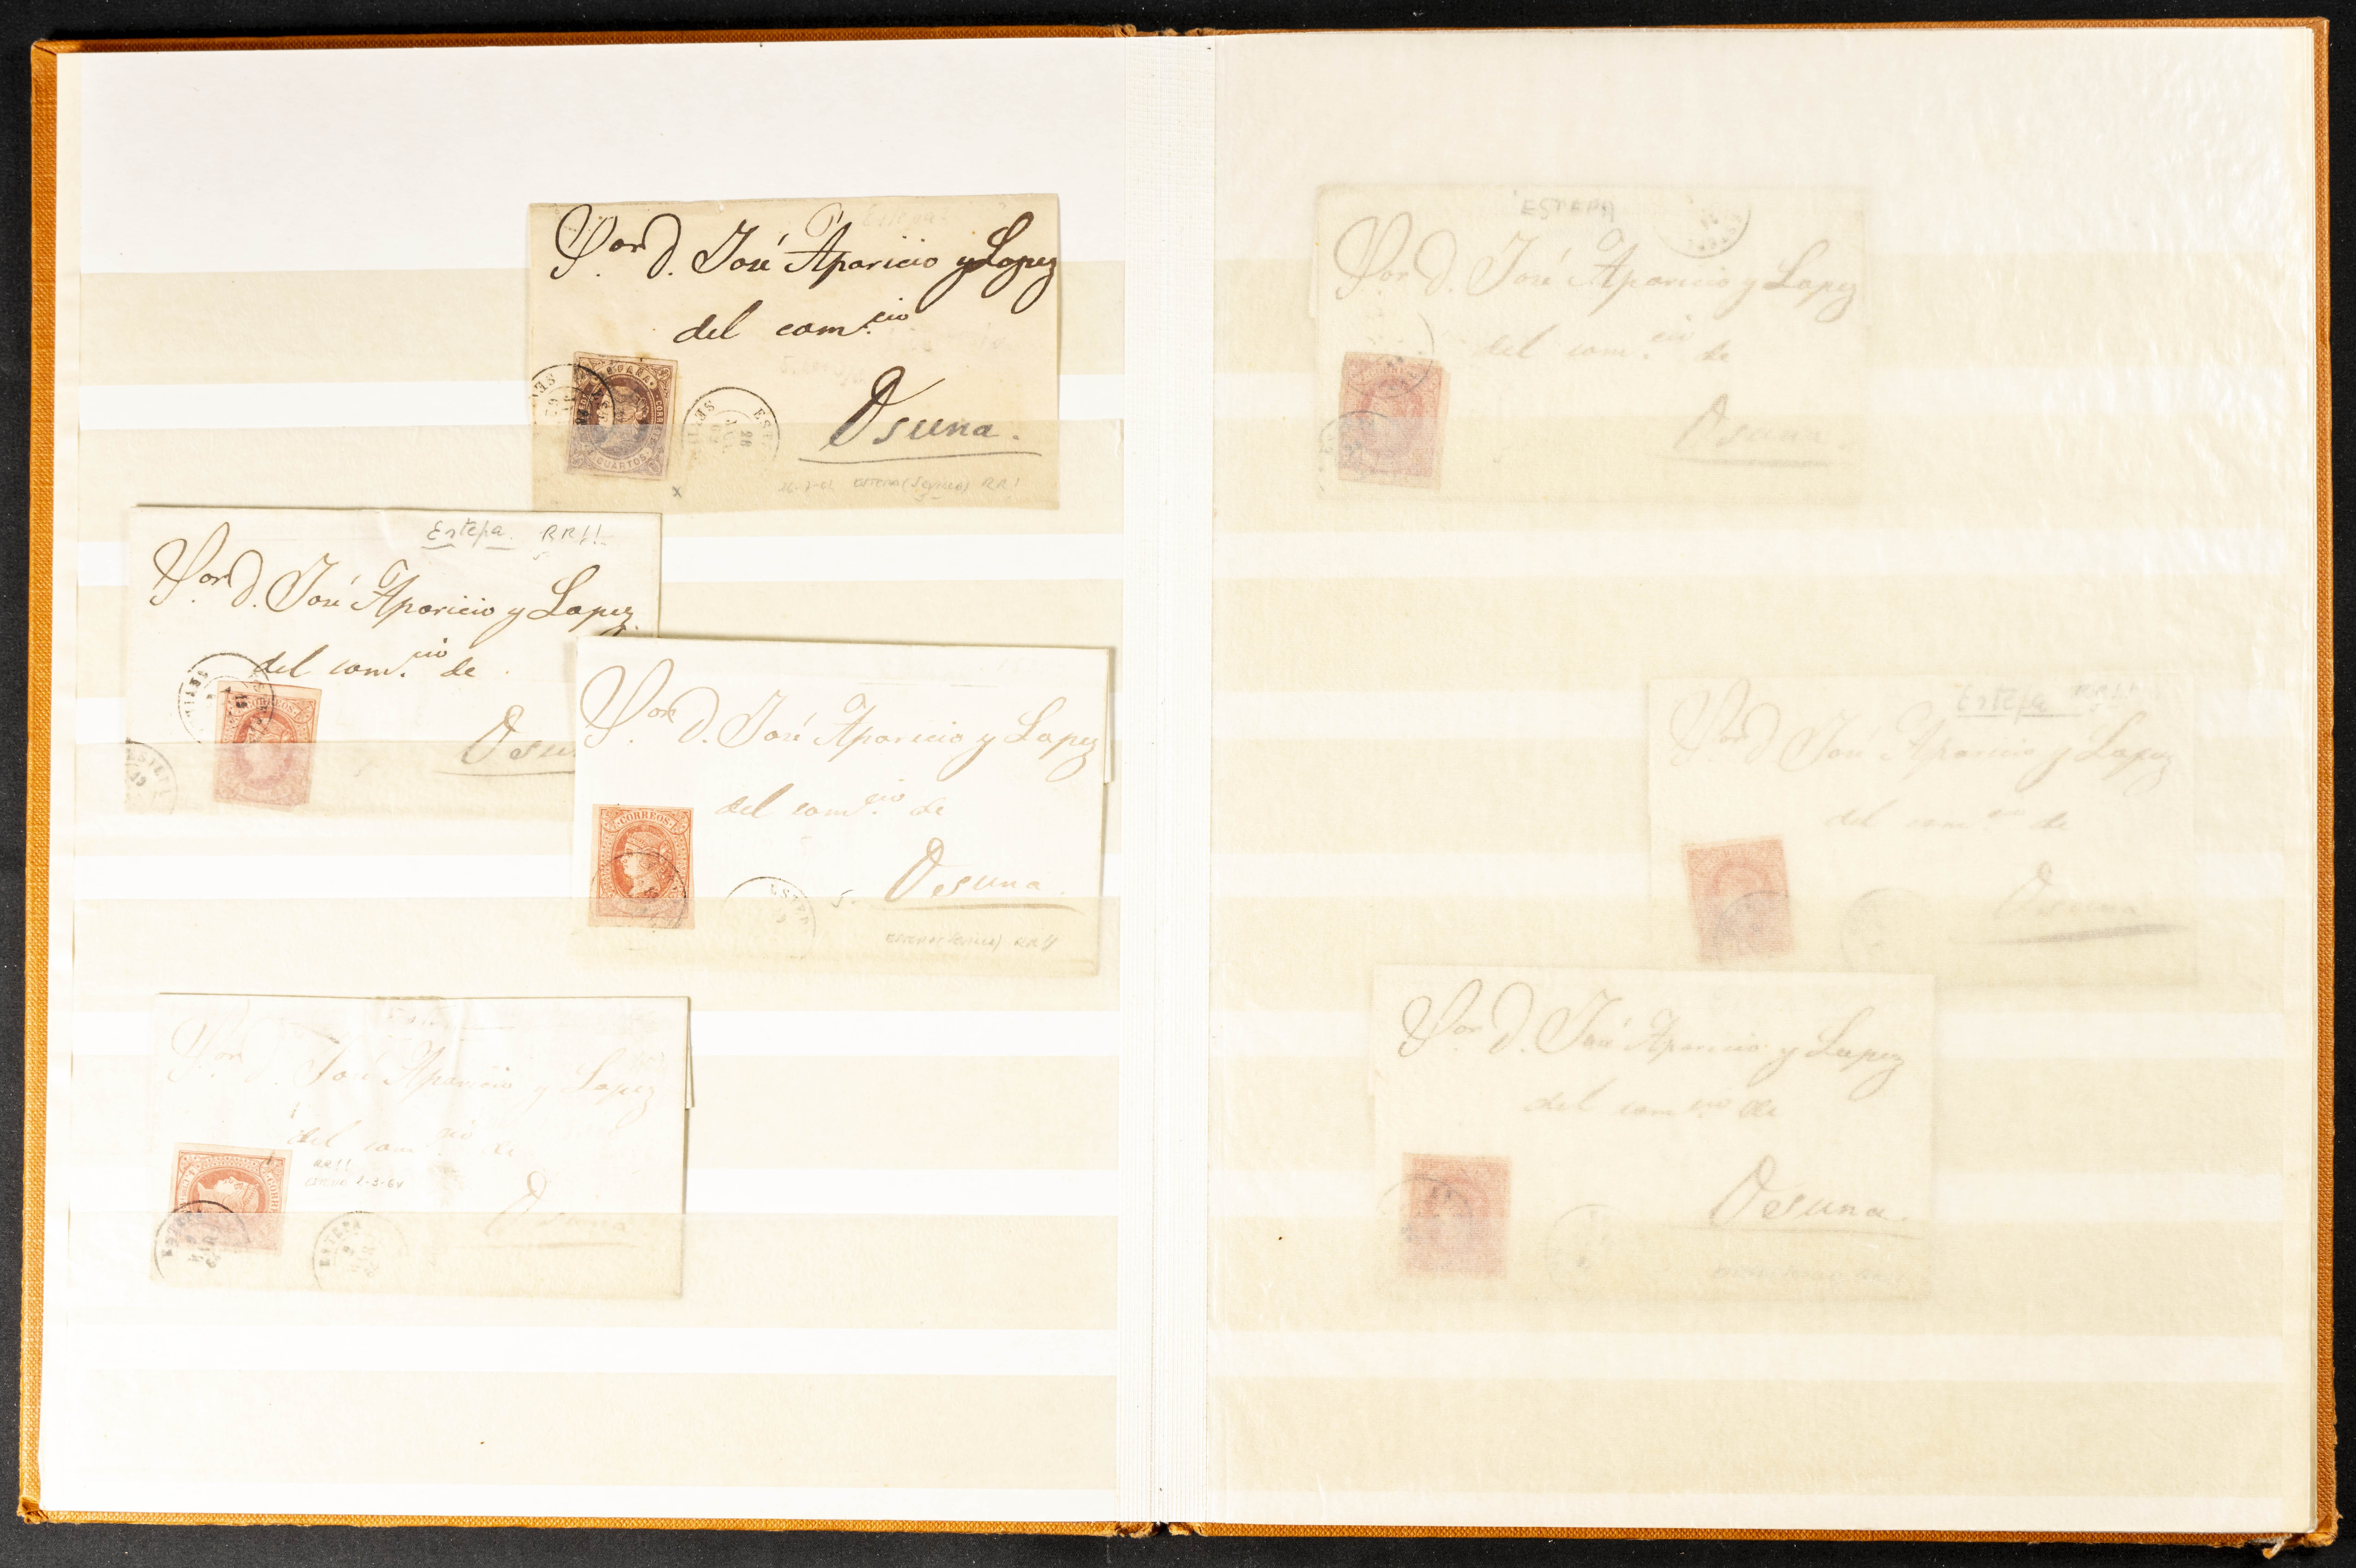 Sor D. José Aparicio y Lopez
del com.cio
Osuna.
CUARTOS
26-7-62 ESTEPA (Sevilla) RR!
Estepa. RR!!
Sor D. José Aparicio y Lopez.
del com.cio de
CORREOS
Osu
Sor D. José Aparicio y Lopez
del com.cio de
CORREOS
Osuna.
ESTEPA (Sevilla) RR!!
Sor D. José Aparicio y Lopez
del com.cio de
RR!!
Osuna
ESTEPA
ESTEPA
ESTEPA
Sor D. José Aparicio y Lopez
del com.cio de
Osuna.
Estepa RR!!
Sor D José Aparicio y Lopez
del com.cio de
Osuna
Sor D. José Aparicio y Lopez
del com.cio de
Osuna.